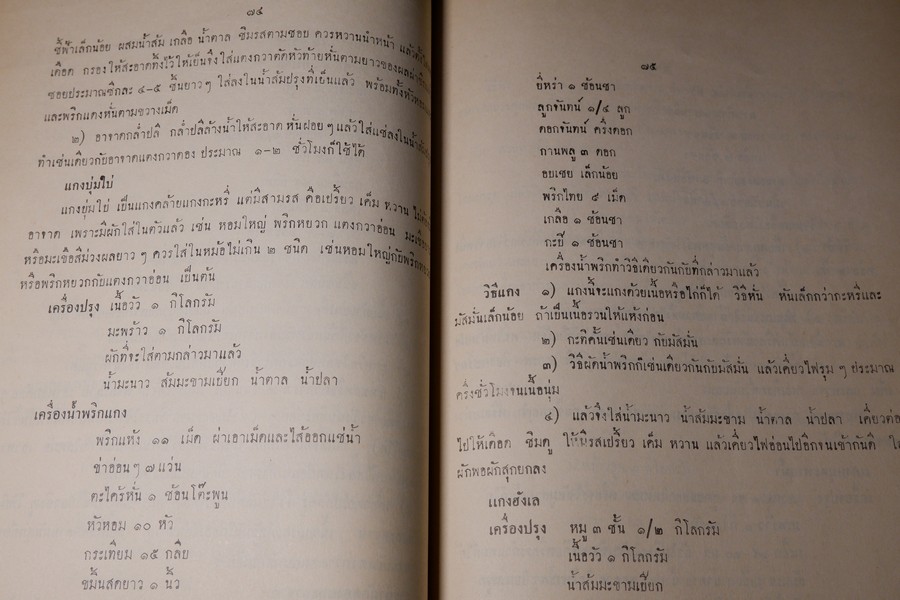 ๗๔
ซีฟ้าเล็กน้อย ผสมน้ำส้ม เกลือ น้ำตาล ชิมรสตามชอบ ควรหวานนำหน้า แล้วตั้งไฟ
เดือด กรองให้สะอาดทิ้งไว้ให้เย็นจึงใส่แตงกวาตัดหัวท้ายหั่นตามยาวของผลผ่าซีก
ซอยประมาณซีกละ ๔-๕ ชิ้นยาวๆ ใส่ลงในน้ำส้มปรุงที่เย็นแล้ว พร้อมทั้งหัวหอม
และพริกแดงหั่นตามขวางเม็ด
๒) อาจาดกล่ำปลี กล่ำปลีล้างน้ำให้สะอาด หั่นฝอยๆ แล้วใส่แช่ลงในน้ำ
ทำเช่นเดียวกับอาจาดแตงกวาดอง ประมาณ ๑-๒ ชั่วโมงก็ใช้ได้
แกงบุ่มไบ่
แกงบุ่มไบ่ เป็นแกงคล้ายแกงกะหรี่ แต่มีสามรส คือเปรี้ยว เค็ม หวาน
อาจาด เพราะมีผักใส่ในตัวแล้ว เช่น หอมใหญ่ พริกหยวก แตงกวาอ่อน
หรือมะเขือสีม่วงผลยาวๆ ควรใส่ในหม้อไม่เกิน ๒ ชนิด เช่นหอมใหญ่กับพริกหยวก
หรือพริกหยวกกับแตงกวาอ่อน เป็นต้น
เครื่องปรุง เนื้อวัว ๑ กิโลกรัม
มะพร้าว ๑ กิโลกรัม
ผักที่จะใส่ตามกล่าวมาแล้ว
น้ำมะนาว ส้มมะขามเปียก น้ำตาล น้ำปลา
เครื่องน้ำพริกแกง
พริกแห้ง ๑๑ เม็ด ผ่าเอาเม็ดและไส้ออกแช่น้ำ
ข่าอ่อนๆ ๗ แว่น
ตะไคร้หั่น ๑ ช้อนโต๊ะพูน
หัวหอม ๑๐ หัว
กระเทียม ๑๕ กลีบ
ขมิ้นสดยาว ๑ นิ้ว
๗๕
ยี่หร่า ๑ ช้อนชา
ลูกจันทน์ ๑/๔ ลูก
ดอกจันทน์ ครึ่งดอก
กานพลู ๓ ดอก
อบเชย เล็กน้อย
พริกไทย ๙ เม็ด
เกลือ ๑ ช้อนชา
กะปิ ๑ ช้อนชา
เครื่องน้ำพริกทำวิธีเดียวกันกับที่กล่าวมาแล้ว
วิธีแกง ๑) แกงนี้จะแกงด้วยเนื้อหรือไก่ก็ได้ วิธีหั่น หั่นเล็กกว่ากะหรี่และ
มัสมั่นเล็กน้อย ถ้าเป็นเนื้อรวนให้แห้งก่อน
๒) กะทิคั้นเช่นเดียว กับมัสมั่น
๓) วิธีผัดน้ำพริกก็เช่นเดียวกันกับมัสมั่น แล้วเคี่ยวไฟรุมๆ ประมาณ
ครึ่งชั่วโมงจนเนื้อนุ่ม
๔) แล้วจึงใส่น้ำมะนาว น้ำส้มมะขาม น้ำตาล น้ำปลา เคี่ยวต่อ
ไปให้เดือด ชิมดู ให้มีรสเปรี้ยว เค็ม หวาน แล้วเคี่ยวไฟอ่อนไปอีกจนเข้ากันดี
ผักพอผักสุกยกลง
แกงฮังเล
เครื่องปรุง หมู ๓ ชั้น ๑/๒ กิโลกรัม
เนื้อวัว ๑ กิโลกรัม
น้ำส้มมะขามเปียก